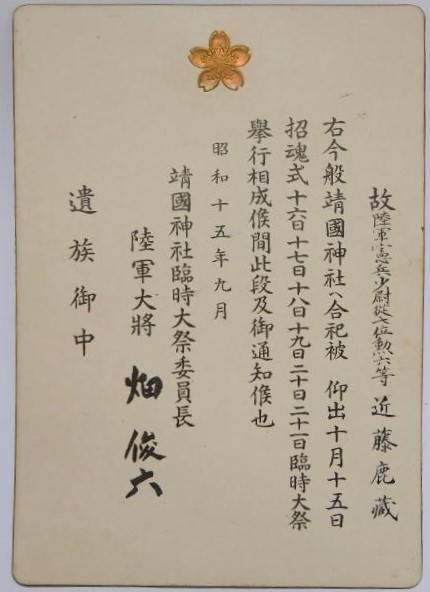 故陸軍憲兵少尉從七位勲六等 近藤鹿藏
右今般靖國神社ヘ合祀被 仰出十月十五日
招魂式十六日十七日十八日十九日二十日二十一日臨時大祭
擧行相成候間此段及御通知候也
昭和十五年九月
靖國神社臨時大祭委員長
陸軍大將 畑俊六
遺族御中